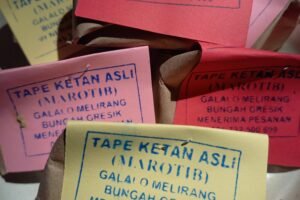 GALALO MELIRANG
BUNGAH GRESIK
TAPE KETAN ASLI
(MAROTIB)
GALALO MELIRANG
BUNGAH GRESIK
MENERIMA PESANAN
TAPE KETAN ASLI
(MAROTIB)
GALALO MELIRANG
BUNGAH GRESIK
MENERIMA
TAPE KETAN ASLI
(MAROTIB)
GALALO MELIRANG
BUNGAH GRESIK